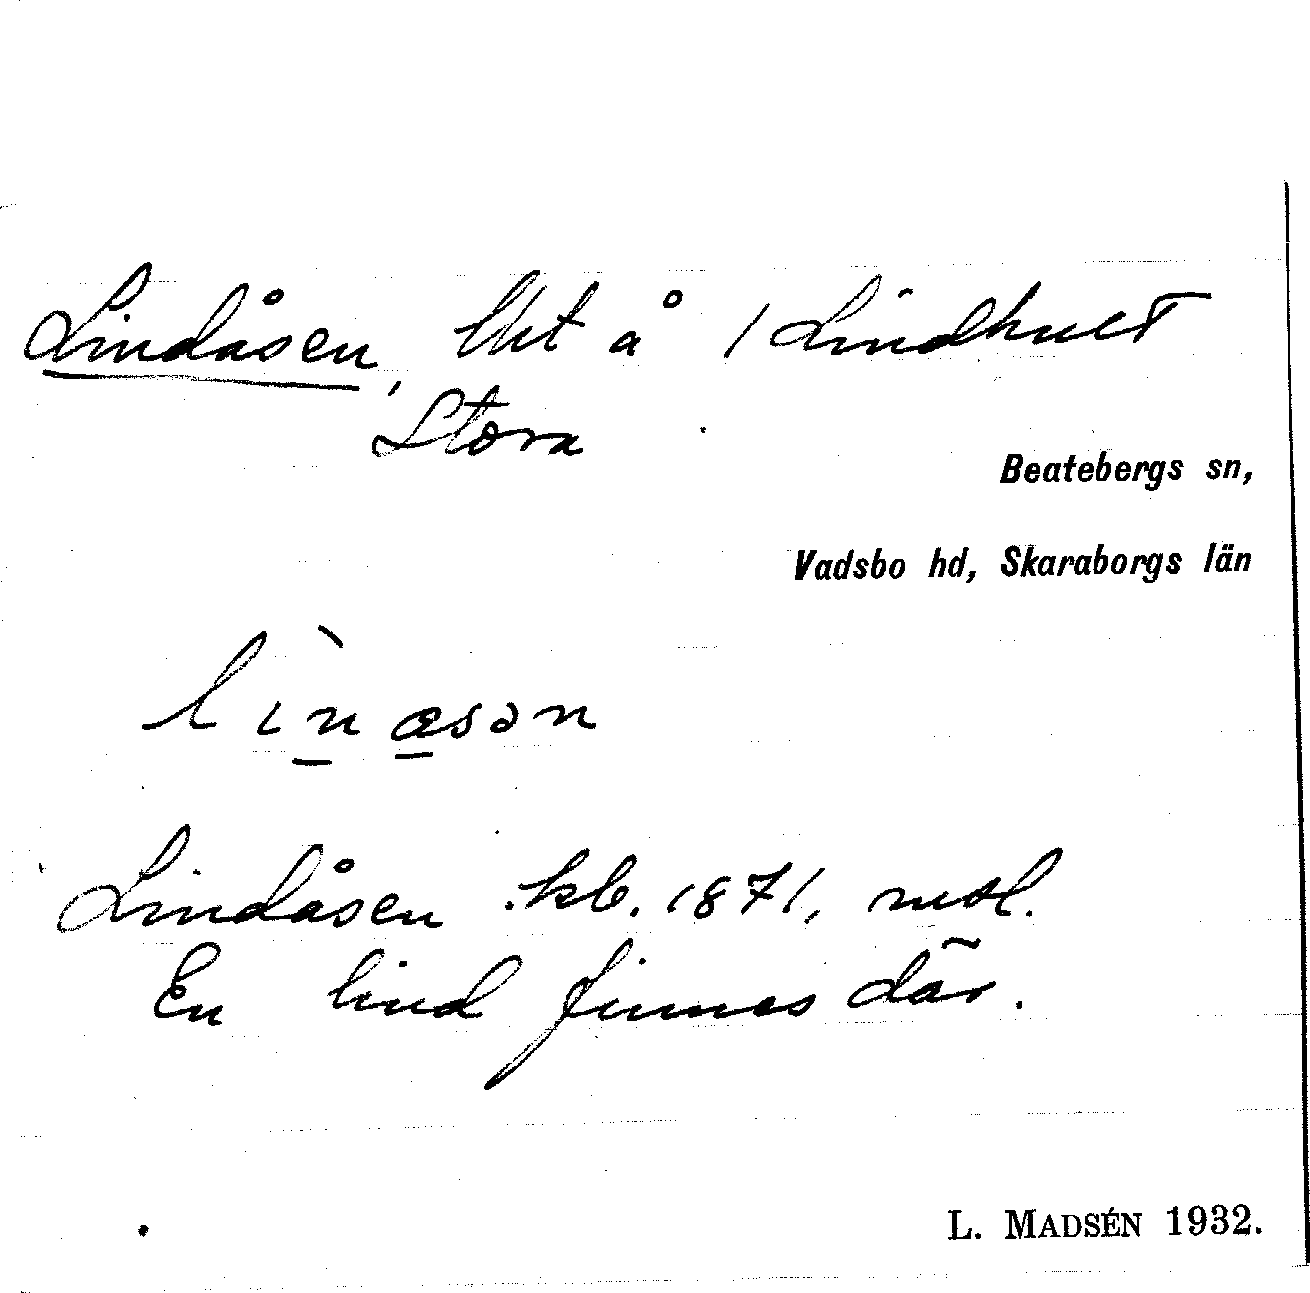 Lindåsen, lht å 1 Lindhult
Stora
Beatebergs sn,
Vadsbo hd, Skaraborgs län
lìnæsən
Lindåsen kb. 1871, mtl.
En lind finnes där.
L. MADSÉN 1932.